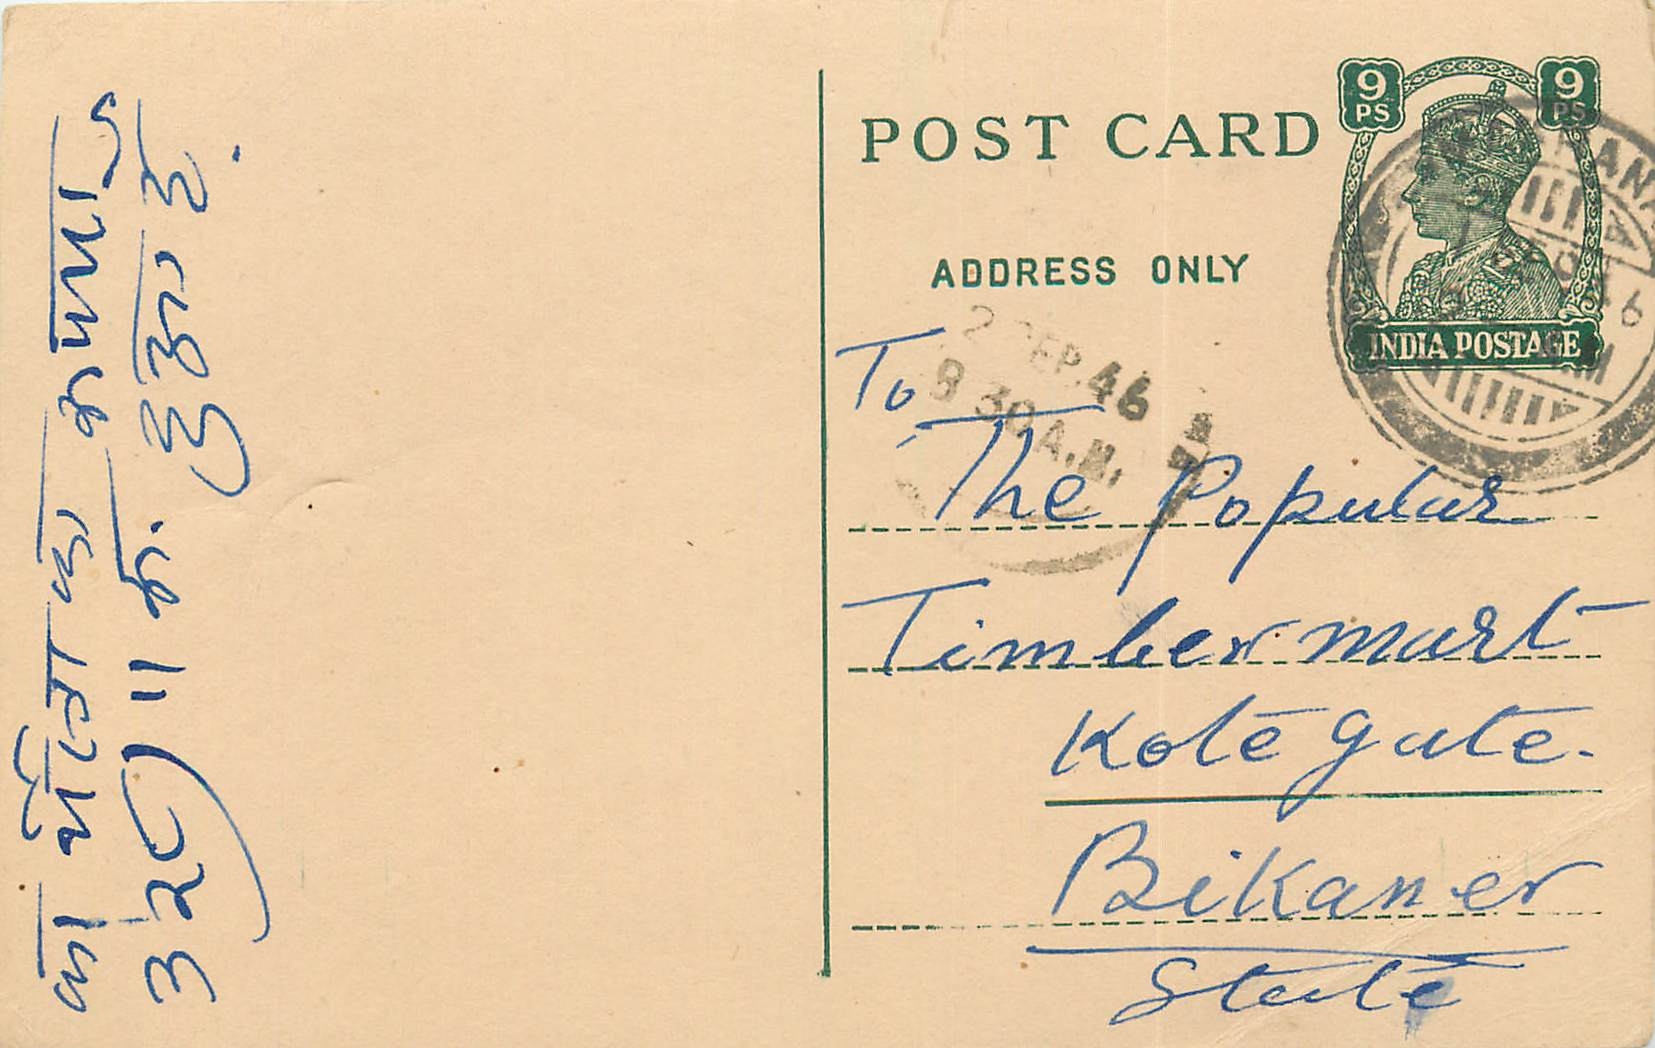 POST CARD
9 PS
9 PS
ADDRESS ONLY
INDIA POSTAGE
2 SEP. 46
8 30 A.M.
To,
The Popular
Timber mart
Kote gate.
Bikaner
State
का
का
३२८) ॥ में. हुआ है.